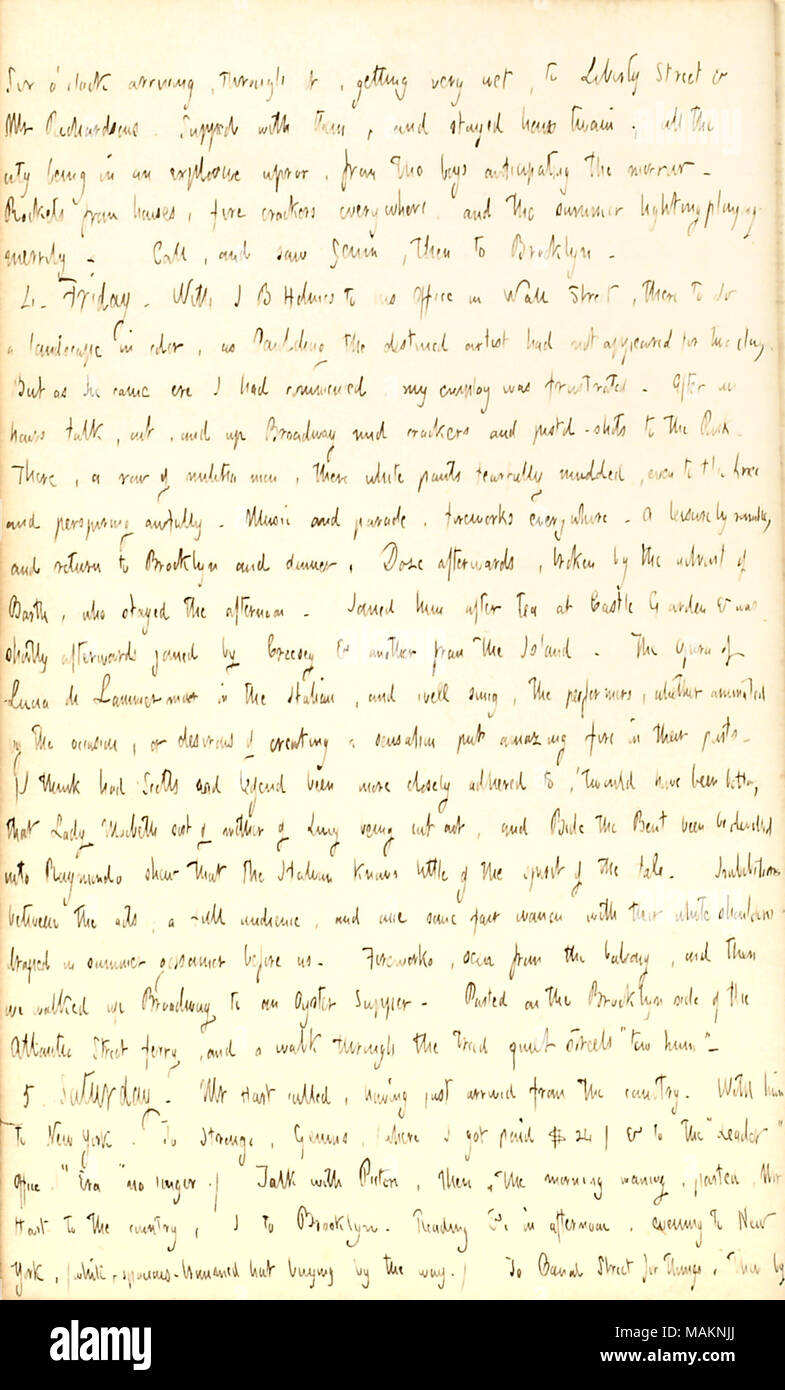 Six o'clock arriving, through it, getting very wet, to Liberty Street &
Mr Richardsons. Supped with them, and stayed hours twain, all the
city being in an explosive uproar, from the boys anticipating the morrow.
Rockets from houses, fire crackers everywhere, and the summer lightning playing
merrily. Call, and saw, then to Brooklyn.
4. Friday. With J B Holmes to his office in Wall Street, there to do
a landscape in color, as Paulding the destined artist had not appeared for two days.
But as he came ere I had commenced, my employ was frustrated. After an
hours talk, out, and up Broadway mid crackers and pistol-shots to the Park.
There, a row of militia men, there white pants fearfully mudded, even to the knee
and perspiring awfully. Music and parade, fireworks everywhere. A leisurely ramble,
and return to Brooklyn and dinner. Doze afterwards, broken by the advent of
Barth, who stayed the afternoon. Joined him after tea at Castle Garden & was
shortly afterwards joined by Creecy & another from the Island. The Opera of
Lucia di Lammermoor in the Italian, and well sung, the performers, whether animated
by the occasion, or desirous of creating a sensation put amazing fire in their parts.
(I think had Scotts sad legend been more closely adhered to, 'twould have been better,
that Lady Macbeth sort of mother of Lucy being cut out, and Bide the Bent been bedeviled
into Raymundo show that the Italian knows little of the spirit of the tale.
between the acts, a full audience, and some fair women with their white shoulders
draped in summer gossamer before us. Fireworks, seen from the balcony, and then
we walked up Broadway to an Oyster Supper. Parted on the Brooklyn side of the
Atlantic Street ferry, and a walk through the quiet streets "tow hum".
5. Saturday. Mr Hart called, having just arrived from the country. With him
to New York. To Strongs, Genins, (where I got paid $24) & to the "Leader"
office. ("Era" no longer.) Talk with Picton, then, the morning waning, parted, Mr
Hart to the country, I to Brooklyn. Reading &c in afternoon, evening to New
York, (white, spacious-brimmed hat buying by the way.) To Canal Street for things, then by
alamy
Image ID: MAKNJJ
www.alamy.com